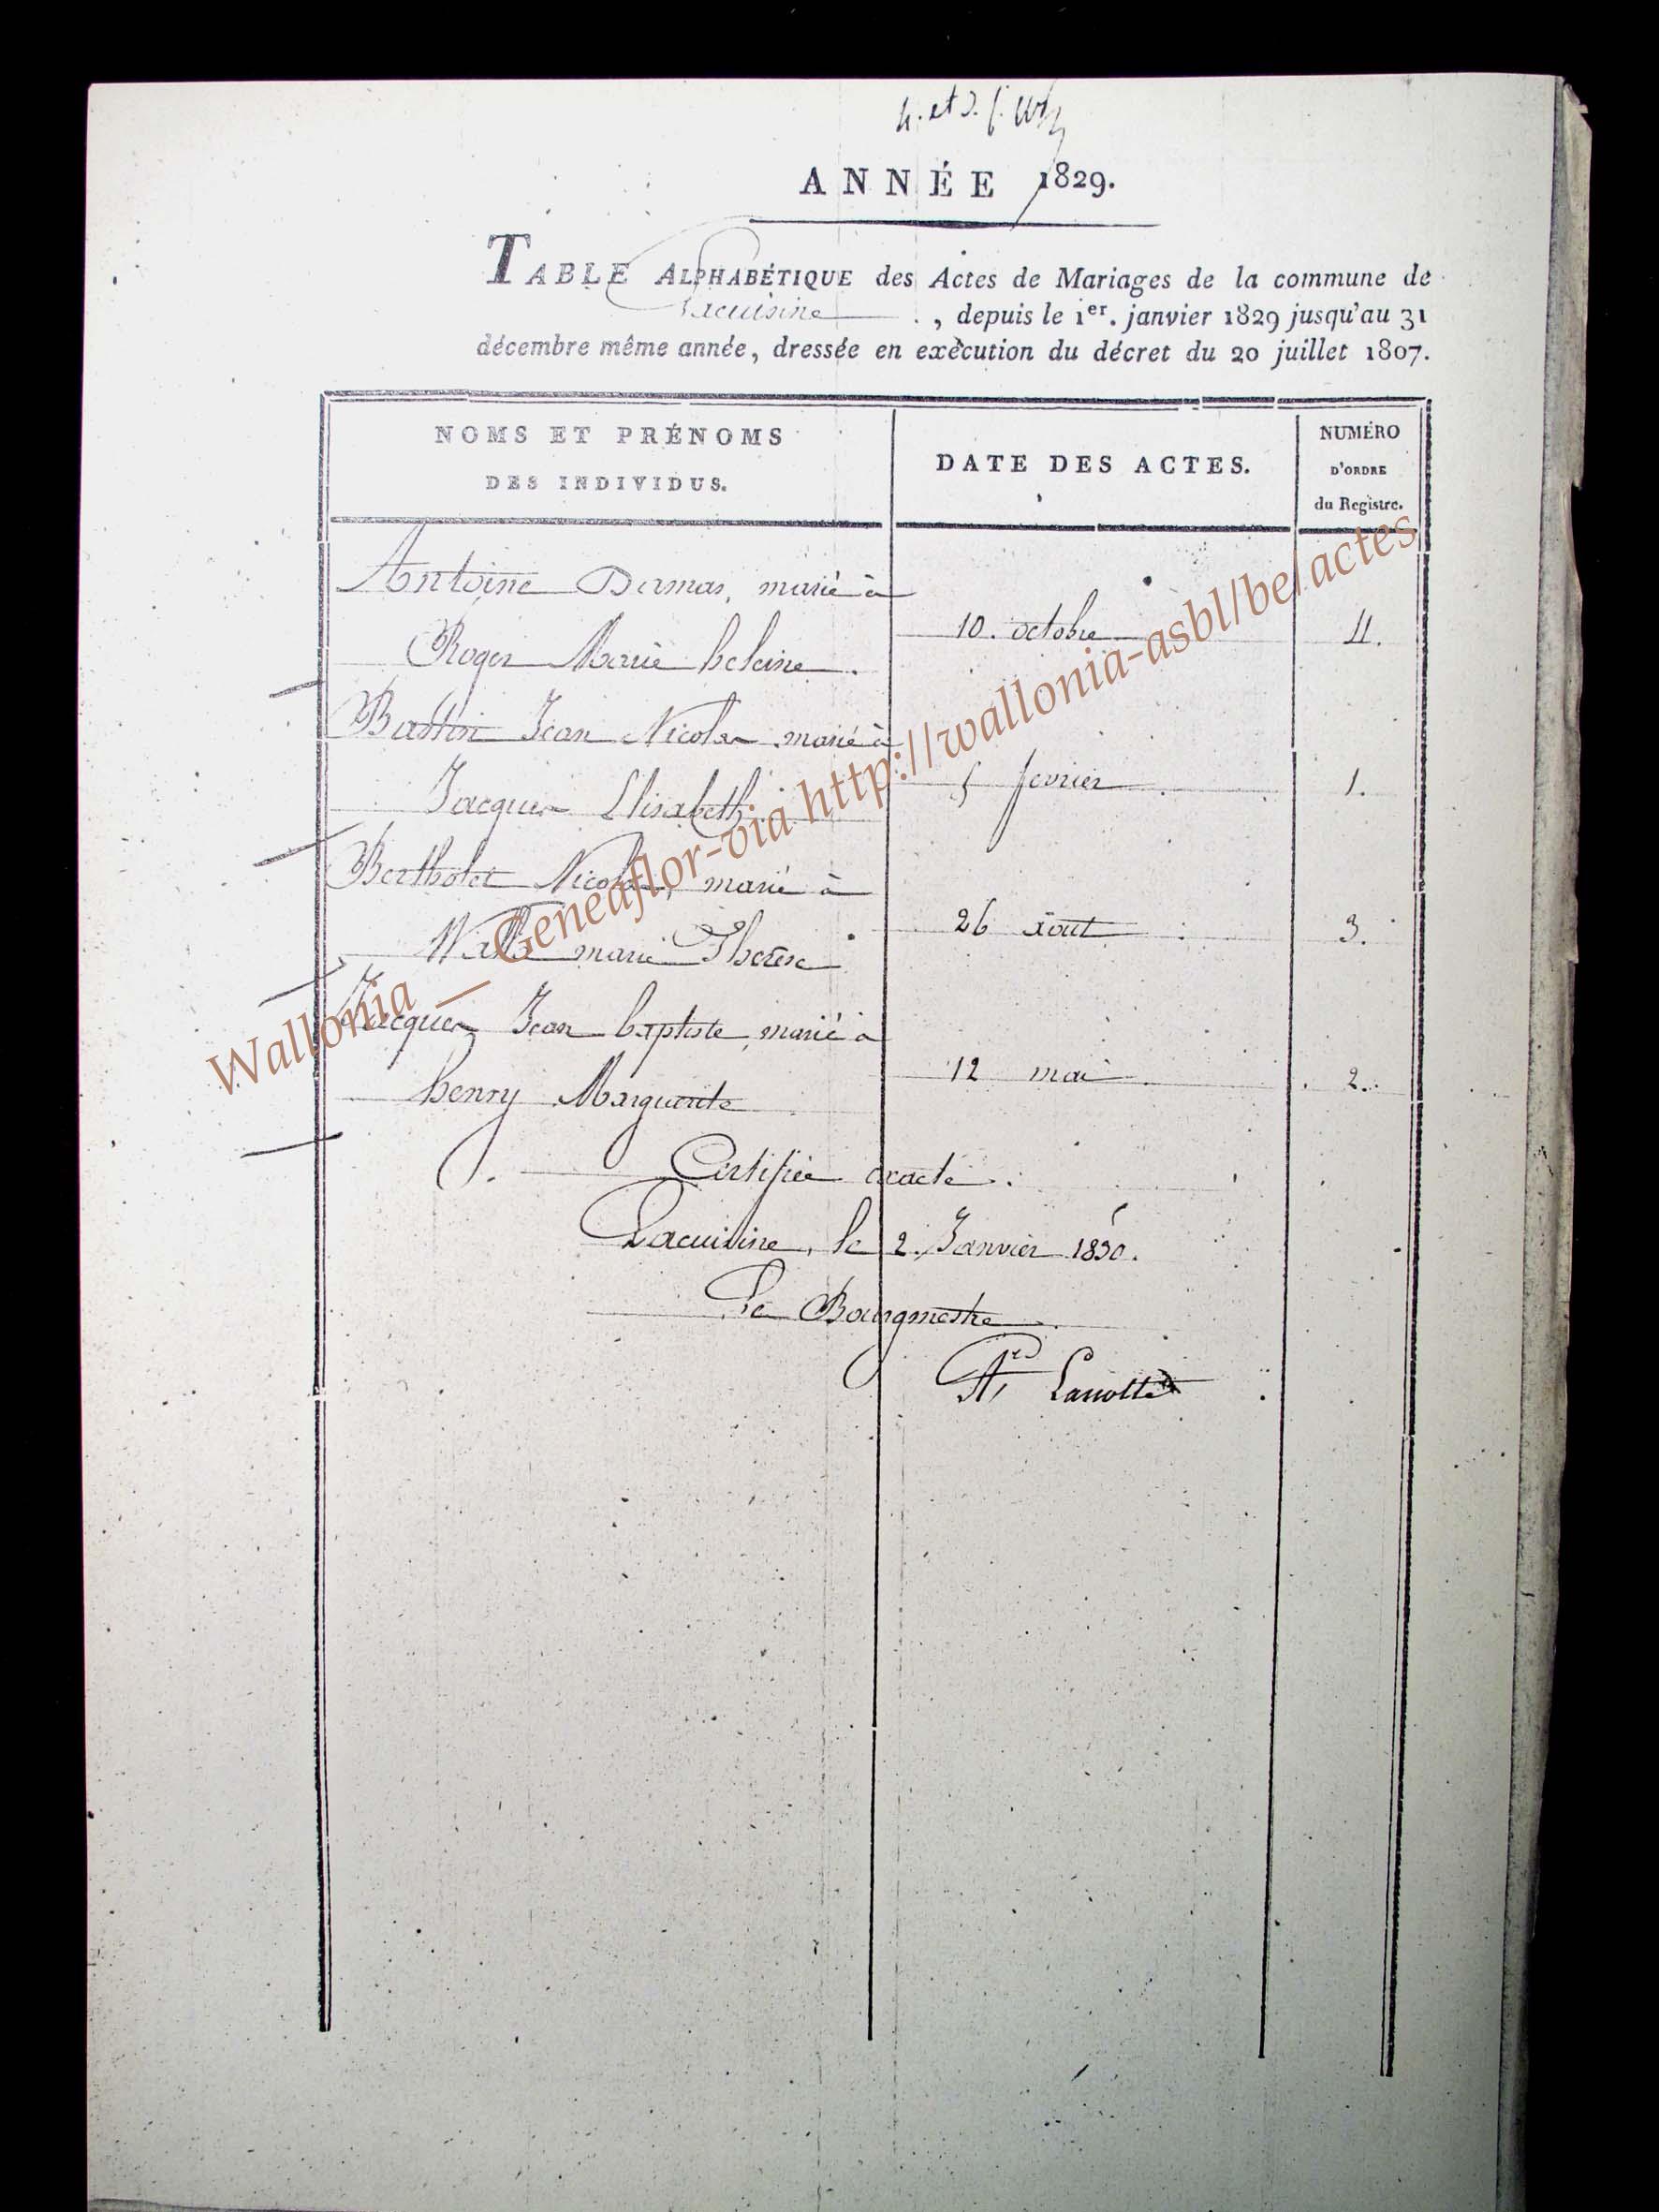 ANNÉE 1829.
TABLE ALPHABÉTIQUE des Actes de Mariages de la commune de
Lacuisine, depuis le 1er. janvier 1829 jusqu'au 31
décembre même année, dressée en exècution du décret du 20 juillet 1807.
NOMS ET PRÉNOMS
DES INDIVIDUS.
DATE DES ACTES.
NUMÉRO
D'ORDRE
du Registre.
Antoine Dermar, marié à
Roger Marie heleine.
10. octobre
4.
Bastin Jean Nicolas marié à
Jacques Elisabeth
5 fevrier
1.
Bertholet Nicolas, marié à
marie Therese
26 aout
3.
Jacques Jean baptiste, marié à
henry Marguerite
12 mai
2.
Certifiée exacte.
Lacuisine, le 2. Janvier 1830.
Le Bourgmestre
Lanotte
Wallonia — Geneaflor-via http://wallonia-asbl/be/actes